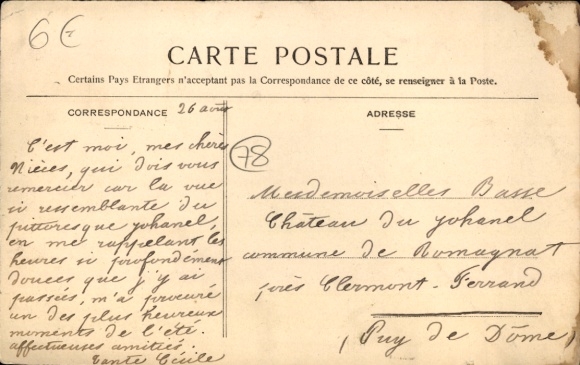 6€
CARTE POSTALE
Certains Pays Etrangers n'acceptant pas la Correspondance de ce côté, se renseigner à la Poste.
CORRESPONDANCE 26 août
C'est moi, mes chères
Nièces, qui dois vous
remercier car la vue
si ressemblante du
pittoresque yohanel
en me rappelant les
heures si profondément
douces que j'y ai
passées, m'a procuré
un des plus heureux
moments de l'été.
affectueuses amitiés.
Tante Cécile
78
ADRESSE
Mesdemoiselles Basse
Château du yohanel
commune de Romagnat
près Clermont-Ferrand
(Puy de Dôme)